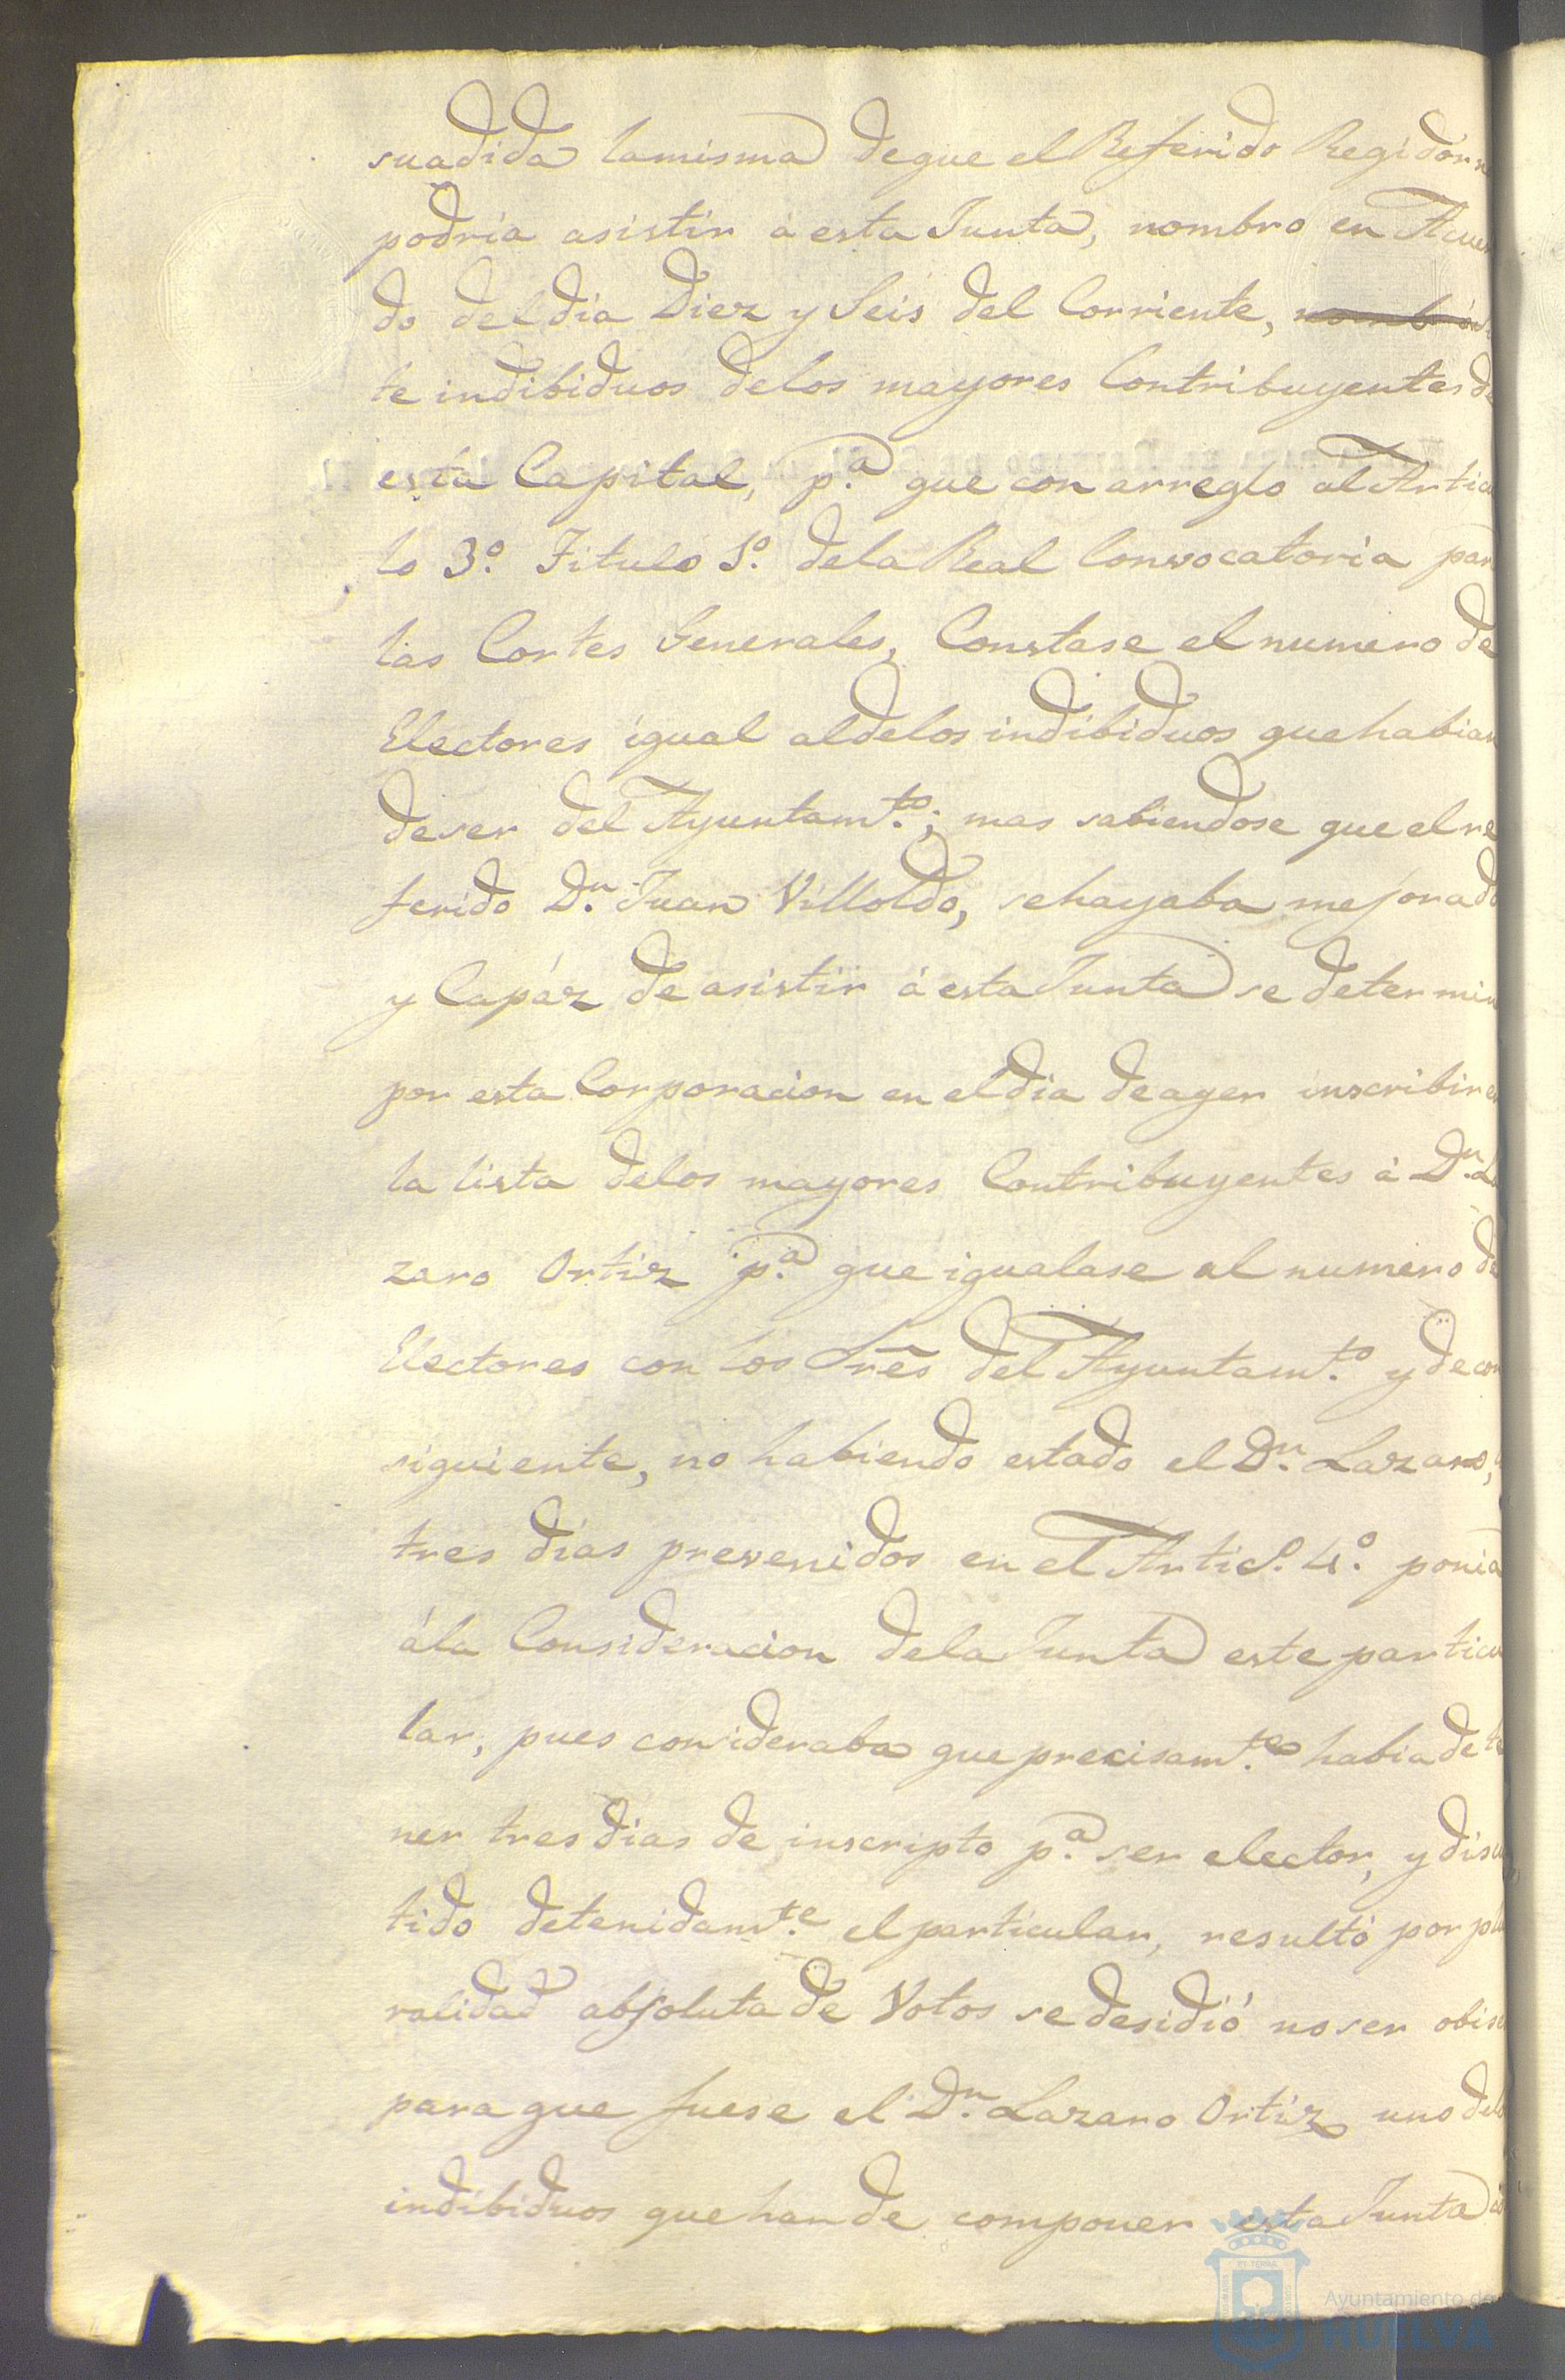 suadida lamisma deque el Referido Regidor n
podria asistir á esta Junta, nombro en Acuer
do del dia Diez y Seis del Corriente,
te indibiduos delos mayores Contribuyentes de
esta Capital, p.ª que con arreglo al Articu
lo 3.º Titulo 1.º dela Real Convocatoria par
las Cortes Generales, Constase el numero de
Electores igual aldelos indibiduos quehabian
deser del Ayuntamt.º; mas sabiendose que el re
ferido Dn. Juan Villoldo, sehayaba mejorado
y Capáz de asistir á esta Junta se determin
por esta Corporacion en eldia deayer inscribir en
la lista delos mayores Contribuyentes á Dn. La
zaro Ortiz p.ª que igualase al numero de
Electores con los Sres del Ayuntamt.º y de con
siguiente, no habiendo estado el Dn. Lazaro,
tres dias prevenidos en el Articl.º 4.º ponia
ála Consideracion dela Junta este particu
lar, pues consideraba que precisamt.e habia de te
ner tres dias de inscripto p.ª ser elector, y discu
tido detenidamt.e el particular, resultó por plu
ralidad absoluta de Votos se desidió no ser obise
para que fuese el Dn. Lazaro Ortiz uno delo
indibiduos que han de componer esta Junta
Ayuntamiento de
HUELVA